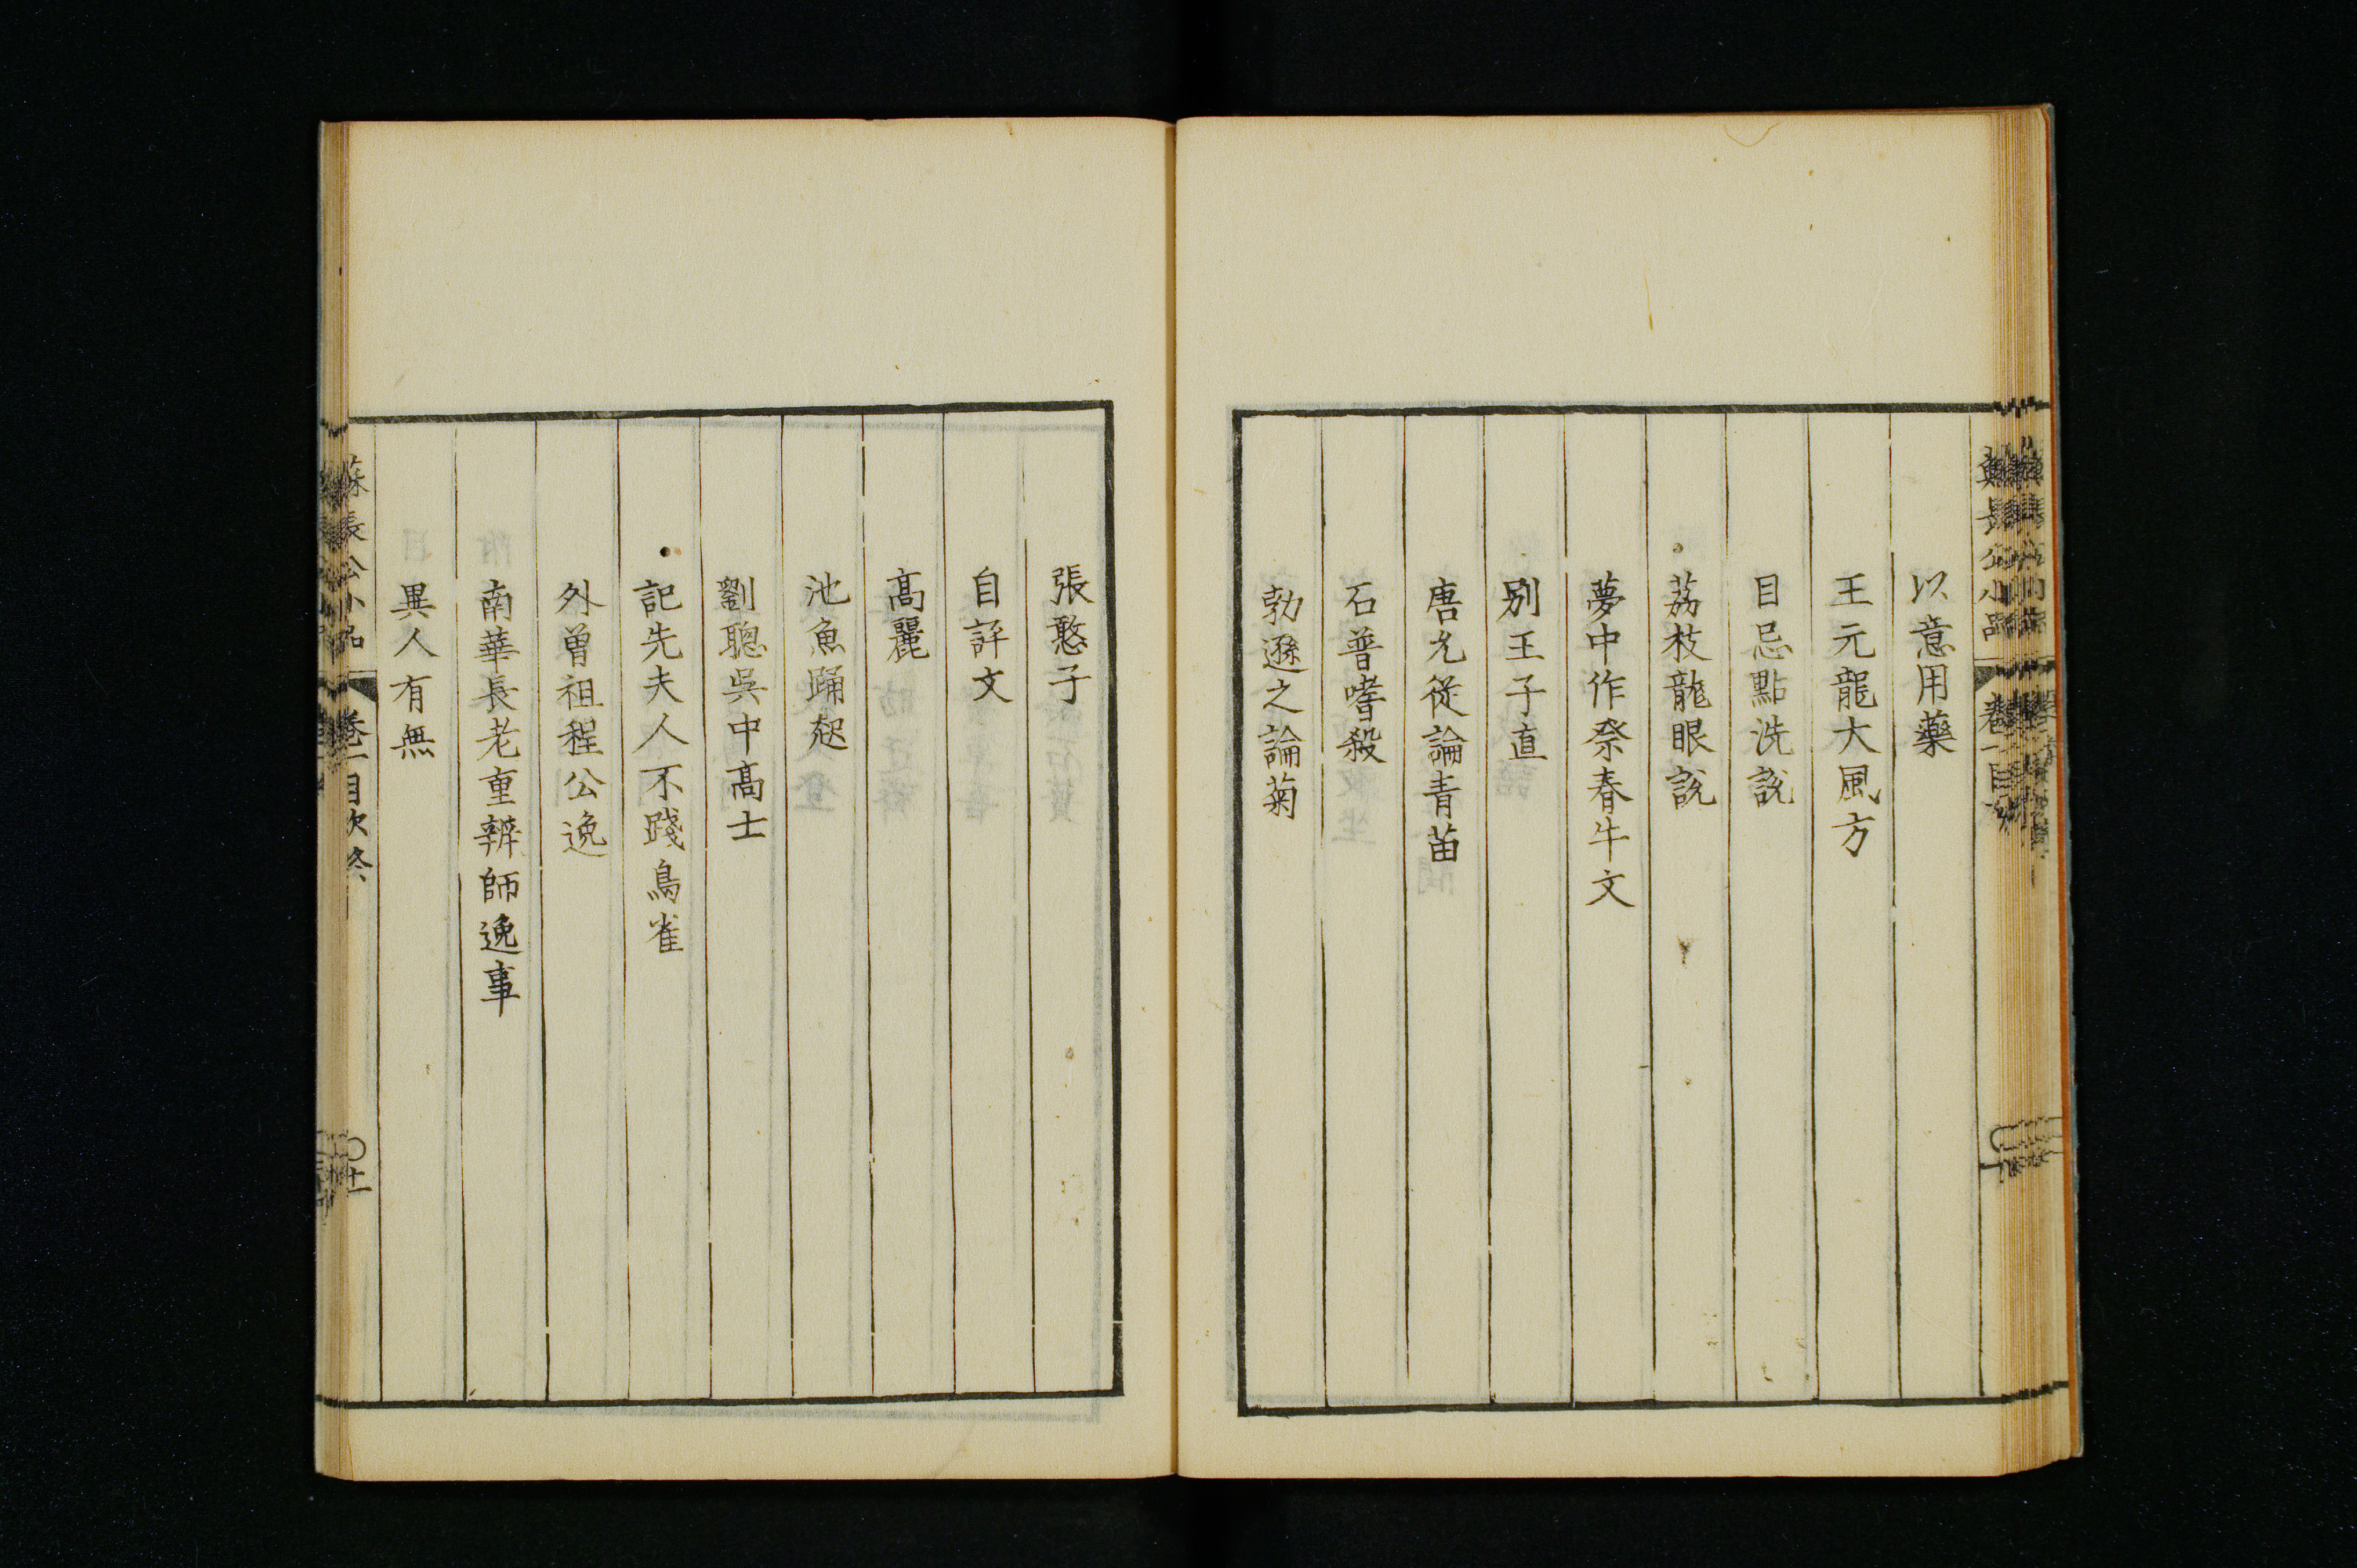 以意用藥
王元龍大風方
目忌點洗說
荔枝龍眼說
夢中作祭春牛文
別王子直
唐允從論青苗
石普嗜殺
勃遜之論菊
張憨子
自評文
高麗
池魚踊起
劉聰吳中高士
記先夫人不踐鳥雀
外曾祖程公逸
南華長老重辨師逸事
異人有無
蘇長公小品
卷一目次終
〇十一